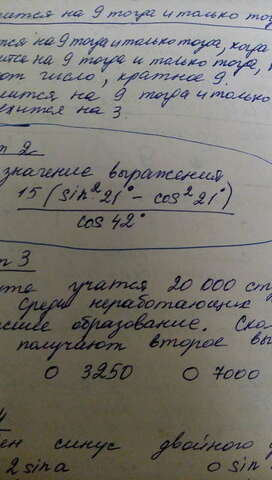 на 9 тогда и только
на 9 тогда и только тогда, когда
на 9 тогда и только тогда,
число, кратное 9.
на 9 тогда и только
на 3.
2
значение выражения
15 (sin² 21° - cos² 21°)
cos 42°
3
учатся 20 000
Среди неработающих
образование.
получают второе
○ 3250 ○ 7000
4
синус двойного
2 sin a ○ sin